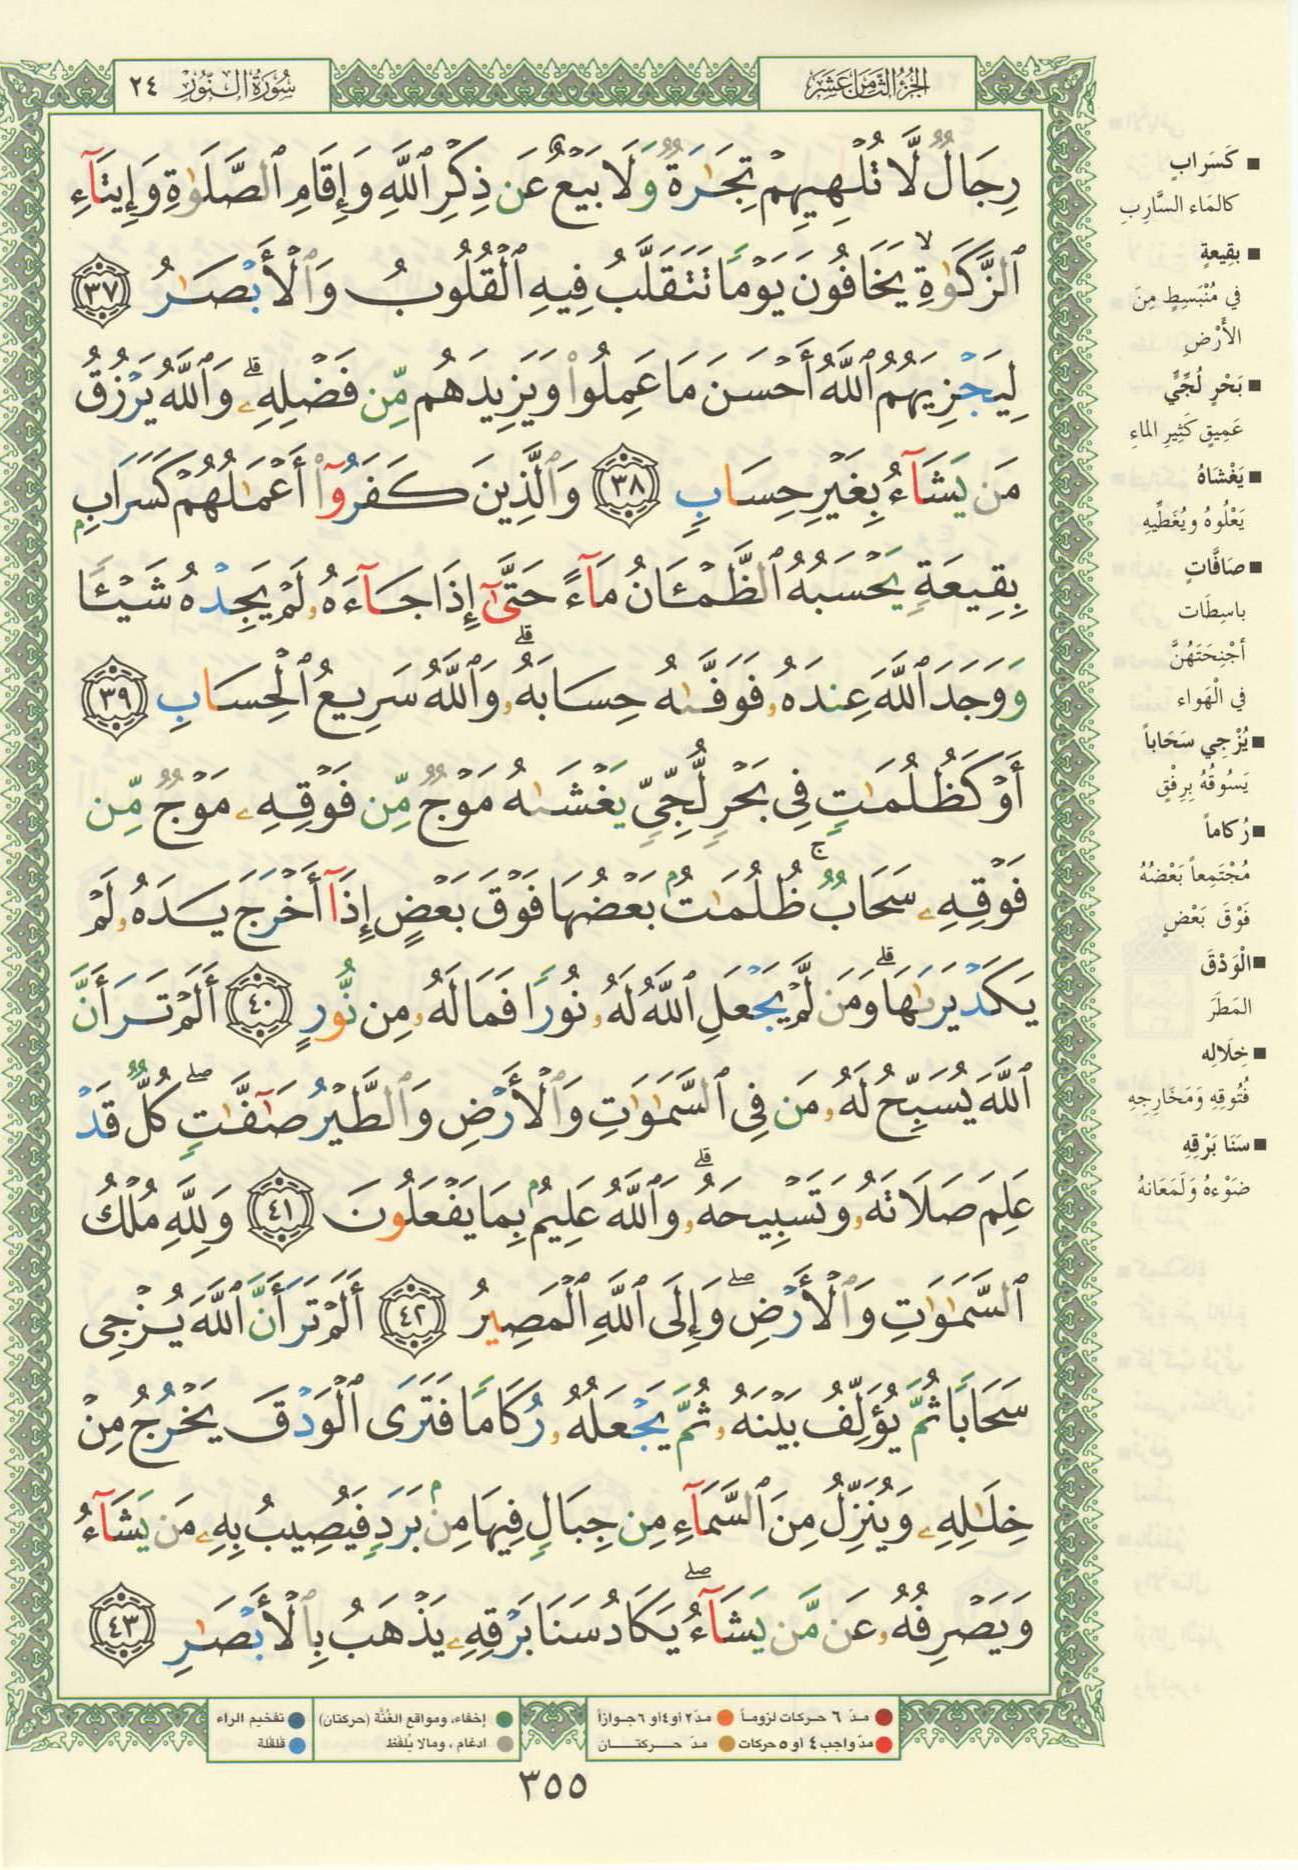 سُورَةُ النُّورِ ٢٤
الجُزْءُ الثَّامِنَ عَشَرَ
رِجَالٌ لَّا تُلْهِيهِمْ تِجَٰرَةٌ وَلَا بَيْعٌ عَن ذِكْرِ ٱللَّهِ وَإِقَامِ ٱلصَّلَوٰةِ وَإِيتَآءِ
ٱلزَّكَوٰةِ ۙ يَخَافُونَ يَوْمًا تَتَقَلَّبُ فِيهِ ٱلْقُلُوبُ وَٱلْأَبْصَٰرُ ٣٧
لِيَجْزِيَهُمُ ٱللَّهُ أَحْسَنَ مَا عَمِلُوا۟ وَيَزِيدَهُم مِّن فَضْلِهِۦ ۗ وَٱللَّهُ يَرْزُقُ
مَن يَشَآءُ بِغَيْرِ حِسَابٍ ٣٨ وَٱلَّذِينَ كَفَرُوٓا۟ أَعْمَٰلُهُمْ كَسَرَابٍۭ
بِقِيعَةٍ يَحْسَبُهُ ٱلظَّمْـَٔانُ مَآءً حَتَّىٰٓ إِذَا جَآءَهُۥ لَمْ يَجِدْهُ شَيْـًٔا
وَوَجَدَ ٱللَّهَ عِندَهُۥ فَوَفَّىٰهُ حِسَابَهُۥ ۗ وَٱللَّهُ سَرِيعُ ٱلْحِسَابِ ٣٩
أَوْ كَظُلُمَٰتٍ فِى بَحْرٍ لُّجِّىٍّ يَغْشَىٰهُ مَوْجٌ مِّن فَوْقِهِۦ مَوْجٌ مِّن
فَوْقِهِۦ سَحَابٌ ۚ ظُلُمَٰتٌۢ بَعْضُهَا فَوْقَ بَعْضٍ إِذَآ أَخْرَجَ يَدَهُۥ لَمْ
يَكَدْ يَرَىٰهَا ۗ وَمَن لَّمْ يَجْعَلِ ٱللَّهُ لَهُۥ نُورًا فَمَا لَهُۥ مِن نُّورٍ ٤٠ أَلَمْ تَرَ أَنَّ
ٱللَّهَ يُسَبِّحُ لَهُۥ مَن فِى ٱلسَّمَٰوَٰتِ وَٱلْأَرْضِ وَٱلطَّيْرُ صَٰٓفَّٰتٍ ۖ كُلٌّ قَدْ
عَلِمَ صَلَاتَهُۥ وَتَسْبِيحَهُۥ ۗ وَٱللَّهُ عَلِيمٌۢ بِمَا يَفْعَلُونَ ٤١ وَلِلَّهِ مُلْكُ
ٱلسَّمَٰوَٰتِ وَٱلْأَرْضِ ۖ وَإِلَى ٱللَّهِ ٱلْمَصِيرُ ٤٢ أَلَمْ تَرَ أَنَّ ٱللَّهَ يُزْجِى
سَحَابًا ثُمَّ يُؤَلِّفُ بَيْنَهُۥ ثُمَّ يَجْعَلُهُۥ رُكَامًا فَتَرَى ٱلْوَدْقَ يَخْرُجُ مِنْ
خِلَٰلِهِۦ وَيُنَزِّلُ مِنَ ٱلسَّمَآءِ مِن جِبَالٍ فِيهَا مِنۢ بَرَدٍ فَيُصِيبُ بِهِۦ مَن يَشَآءُ
وَيَصْرِفُهُۥ عَن مَّن يَشَآءُ ۖ يَكَادُ سَنَا بَرْقِهِۦ يَذْهَبُ بِٱلْأَبْصَٰرِ ٤٣
■ كَسَرابٍ
كالمَاء السَّارِبِ
■ بقِيعَةٍ
في مُنْبَسِطٍ مِنَ
الأَرْضِ
■ بَحْرٍ لُجِّيٍّ
عَمِيقٍ كَثِيرِ الماءِ
■ يَغْشَاهُ
يَعْلُوهُ ويُغَطِّيهِ
■ صَافَّاتٍ
باسِطَات
أجْنِحَتَهُنَّ
في الْهَواء
■ يُزْجِي سَحَاباً
يَسُوقُهُ بِرِفْقٍ
■ رُكاماً
مُجْتَمِعاً بَعْضُهُ
فَوْقَ بَعْضٍ
■ الْوَدْقَ
المَطَرَ
■ خِلَالِهِ
فُتُوقِهِ وَمَخَارِجِهِ
■ سَنَا بَرْقِهِ
ضَوْءهُ وَلَمَعَانهُ
مدّ ٦ حركات لزوماً
مدّ ٢ أو ٤ أو ٦ جوازاً
إخفاء، ومواقع الغُنَّة (حركتان)
تفخيم الراء
مدّ واجب ٤ أو ٥ حركات
مدّ حركتان
ادغام، ومالا يُلفَظ
قلقلة
٣٥٥